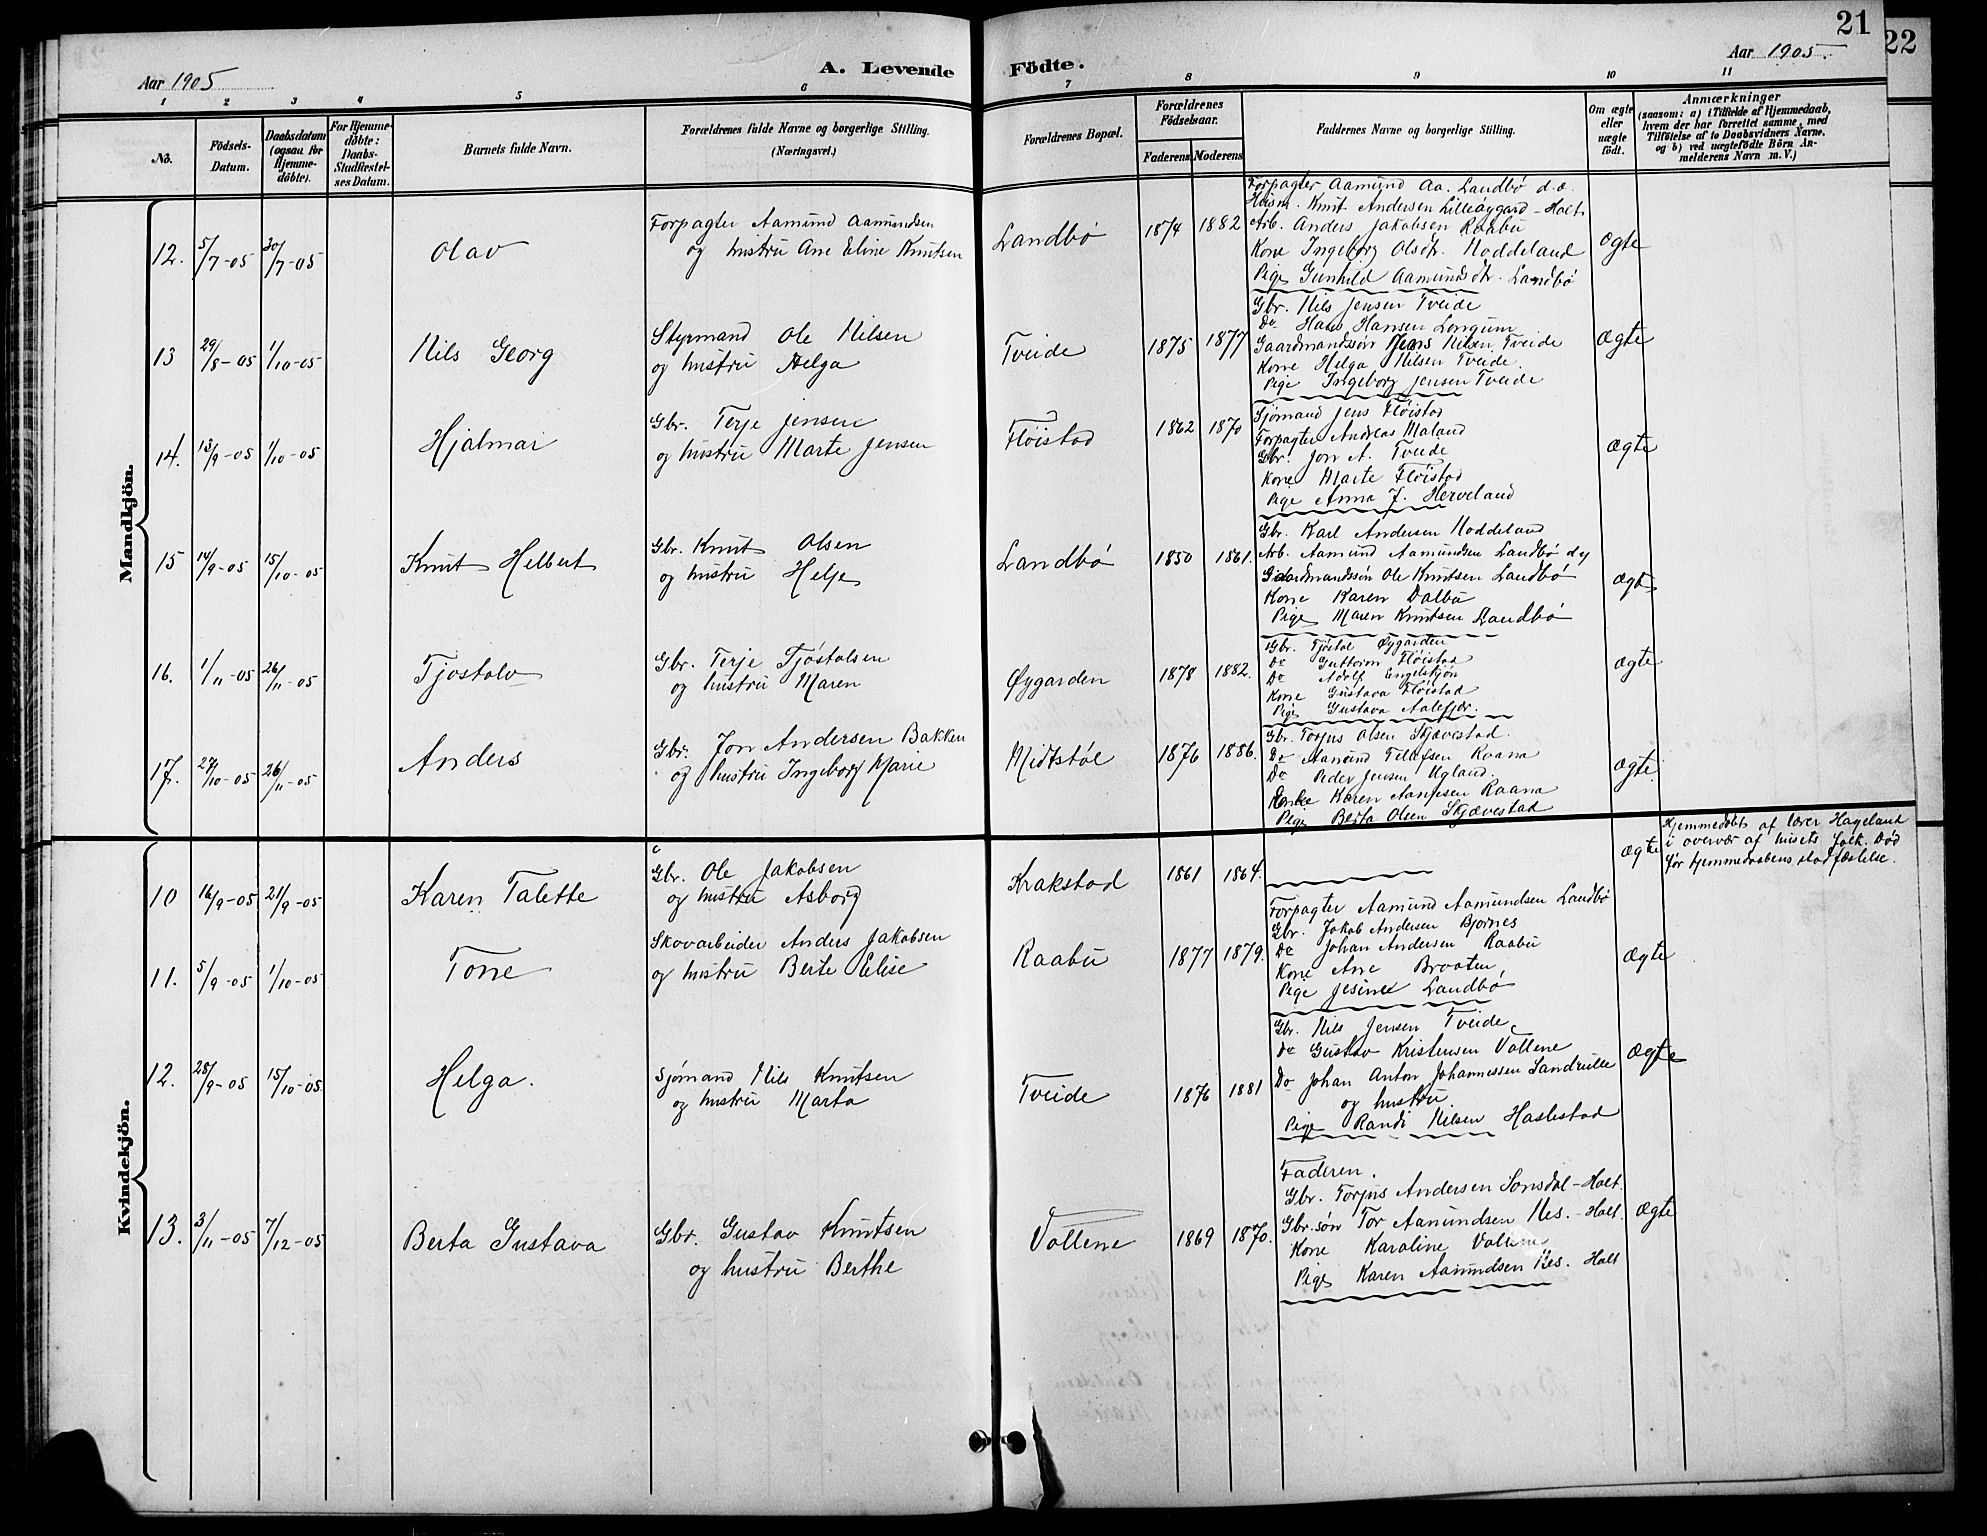 21
22
Aar 1905
A. Levende Födte.
Aar 1905.
1 2 3 4 5 6 7 8 9 10 11
No.
Födsels-Datum.
Daabsdatum (ogsaa for Hjemme-döbte).
For Hjemme-döbte: Daabs-Stadfæstel-ses Datum.
Barnets fulde Navn.
Forældrenes fulde Navne og borgerlige Stilling.
(Næringsvei.)
Forældrenes Bopæl.
Forældrenes Födselsaar.
Faderens Moderens
Faddernes Navne og borgerlige Stilling.
Om ægte eller uægte født.
Anmærkninger
(saasom: a) i Tilfælde af Hjemmedaab,
hvem der har forrettet samme, med
Tilföielse af to Daabsvidners Navne,
og b) ved uægtefödte Börn An-
melderens Navn m. V.)
Mandkjön.
12. 5/7-05 30/7-05 Olav
Forpagter Aamund Aamundsen
og hustru Ane Eline Knutsen
Landbø 1874 1882
Forpagter Aamund Aa. Landbø d.æ.
Husm. Knut Andersen Lilleøygard - Holt
Arb. Anders Jakobsen Raabu
Kone Ingeborg Olsdtr. Noddeland
Pige Gunhild Aamundsdtr. Landbø
Ægte
13 29/8-05 1/10-05 Nils Georg
Styrmand Ole Nilsen
og hustru Helga
Tveide 1875 1877
Gbr. Nils Jensen Tveide
Do Hans Hansen Longum
Gaardmandssøn Jens Nilsen Tveide
Kone Helga Nilsen Tveide.
Pige Ingeborg Jensen Tveide
Ægte
14. 13/9-05 1/10-05 Hjalmar
Gbr. Terje Jensen
og hustru Marte Jensen
Fløistad 1862 1870
Sjømand Jens Fløistad
Forpagter Andreas Maland
Gbr. Jon A. Tveide
Kone Marte Fløistad
Pige Anna J. Herveland
Ægte
15 14/9-05 15/10-05 Knut Helbert
Gbr. Knut Olsen
og hustru Helje
Landbø 1850 1861.
Gbr. Karl Andersen Noddeland
Arb. Aamund Aamundsen Landbø d.y
Gaardmandssøn Ole Knutsen Landbø
Kone Karen Dalbu
Pige Maren Knutsen Landbø
Ægte
16. 1/11-05 26/11-05 Tjostolv
Gbr. Terje Tjøstolsen
og hustru Maren
Øygarden 1878 1882.
Gbr. Tjøstol Øygarden
Do Guttorm Fløistad
Do Adolf Engelstjøn
Kone Gustava Fløistad
Pige Gustava Aalefjær.
Ægte
17. 27/10-05 26/11-05 Anders
Gbr. Jon Andersen Bakken
og hustru Ingeborg Marie
Midtstøl 1876 1886.
Gbr. Torjus Olsen Skjævestad.
Do Aamund Tellefsen Raana
Do Peder Jensen Ugland.
Karen Raana
Pige Berta Olsen Skjævestad
Ægte.
Kvindekjön.
10 16/9-05 21/9-05 Karen Talette
Gbr. Ole Jakobsen
og hustru Asborg
Krakstad 1861 1864.
Ægte
Hjemmedøbt af lærer Hageland
i overvær af husets folk. Død
før hjemmedaabens stadfæstelse.
11. 5/9-05 1/10-05 Tone
Skovarbeider Anders Jakobsen
og hustru Berte Elise
Raabu 1877 1879.
Forpagter Aamund Aamundsen Landbø
Gbr. Jakob Andersen Bjørnes
Do Johan Andersen Raabu
Kone Ane Braaten
Pige Jesine Landbø
Ægte
12. 28/9-05 15/10-05 Helga.
Sjømand Nils Knutsen
og hustru Marta
Tveide 1876 1881
Gbr. Nils Jensen Tveide
do Gustav Kristensen Vollene
Do Johan Anton Johannessen Sandrulle
og hustru.
Pige Randi Nilsen Haslestad
Ægte
13. 3/11-05 7/12-05 Berta Gustava
Gbr. Gustav Knutsen
og hustru Berthe
Vollene 1869 1870.
Faderen.
Gbr. Torjus Andersen Sonsdal - Holt.
Gbr.søn Tor Aamundsen Nes. - Holt.
Kone Karoline Vollene
Pige Karen Aamundsen Nes. Holt
Ægte